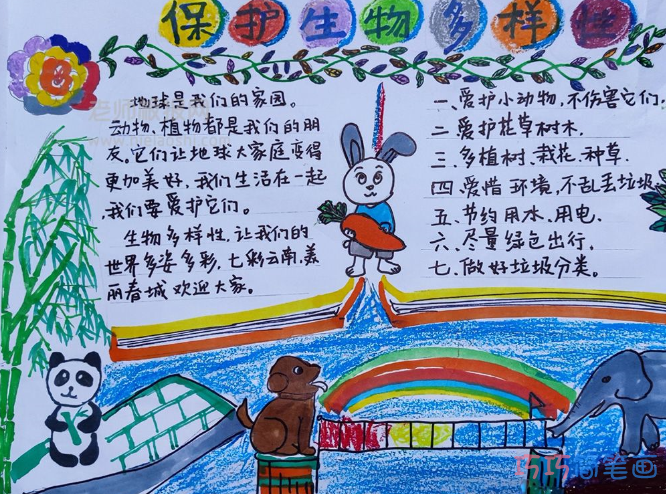 保护生物多样性
地球是我们的家园。
动物、植物都是我们的朋
友,它们让地球大家庭变得
更加美好,我们生活在一起
,我们要爱护它们。
生物多样性,让我们的
世界多姿多彩,七彩云南,美
丽春城欢迎大家。
一、爱护小动物,不伤害它们。
二、爱护花草树木。
三、多植树、栽花、种草.
四、爱惜环境,不乱丢垃圾
五、节约用水、用电.
六、尽量绿色出行.
七、做好垃圾分类。
巧巧简笔画